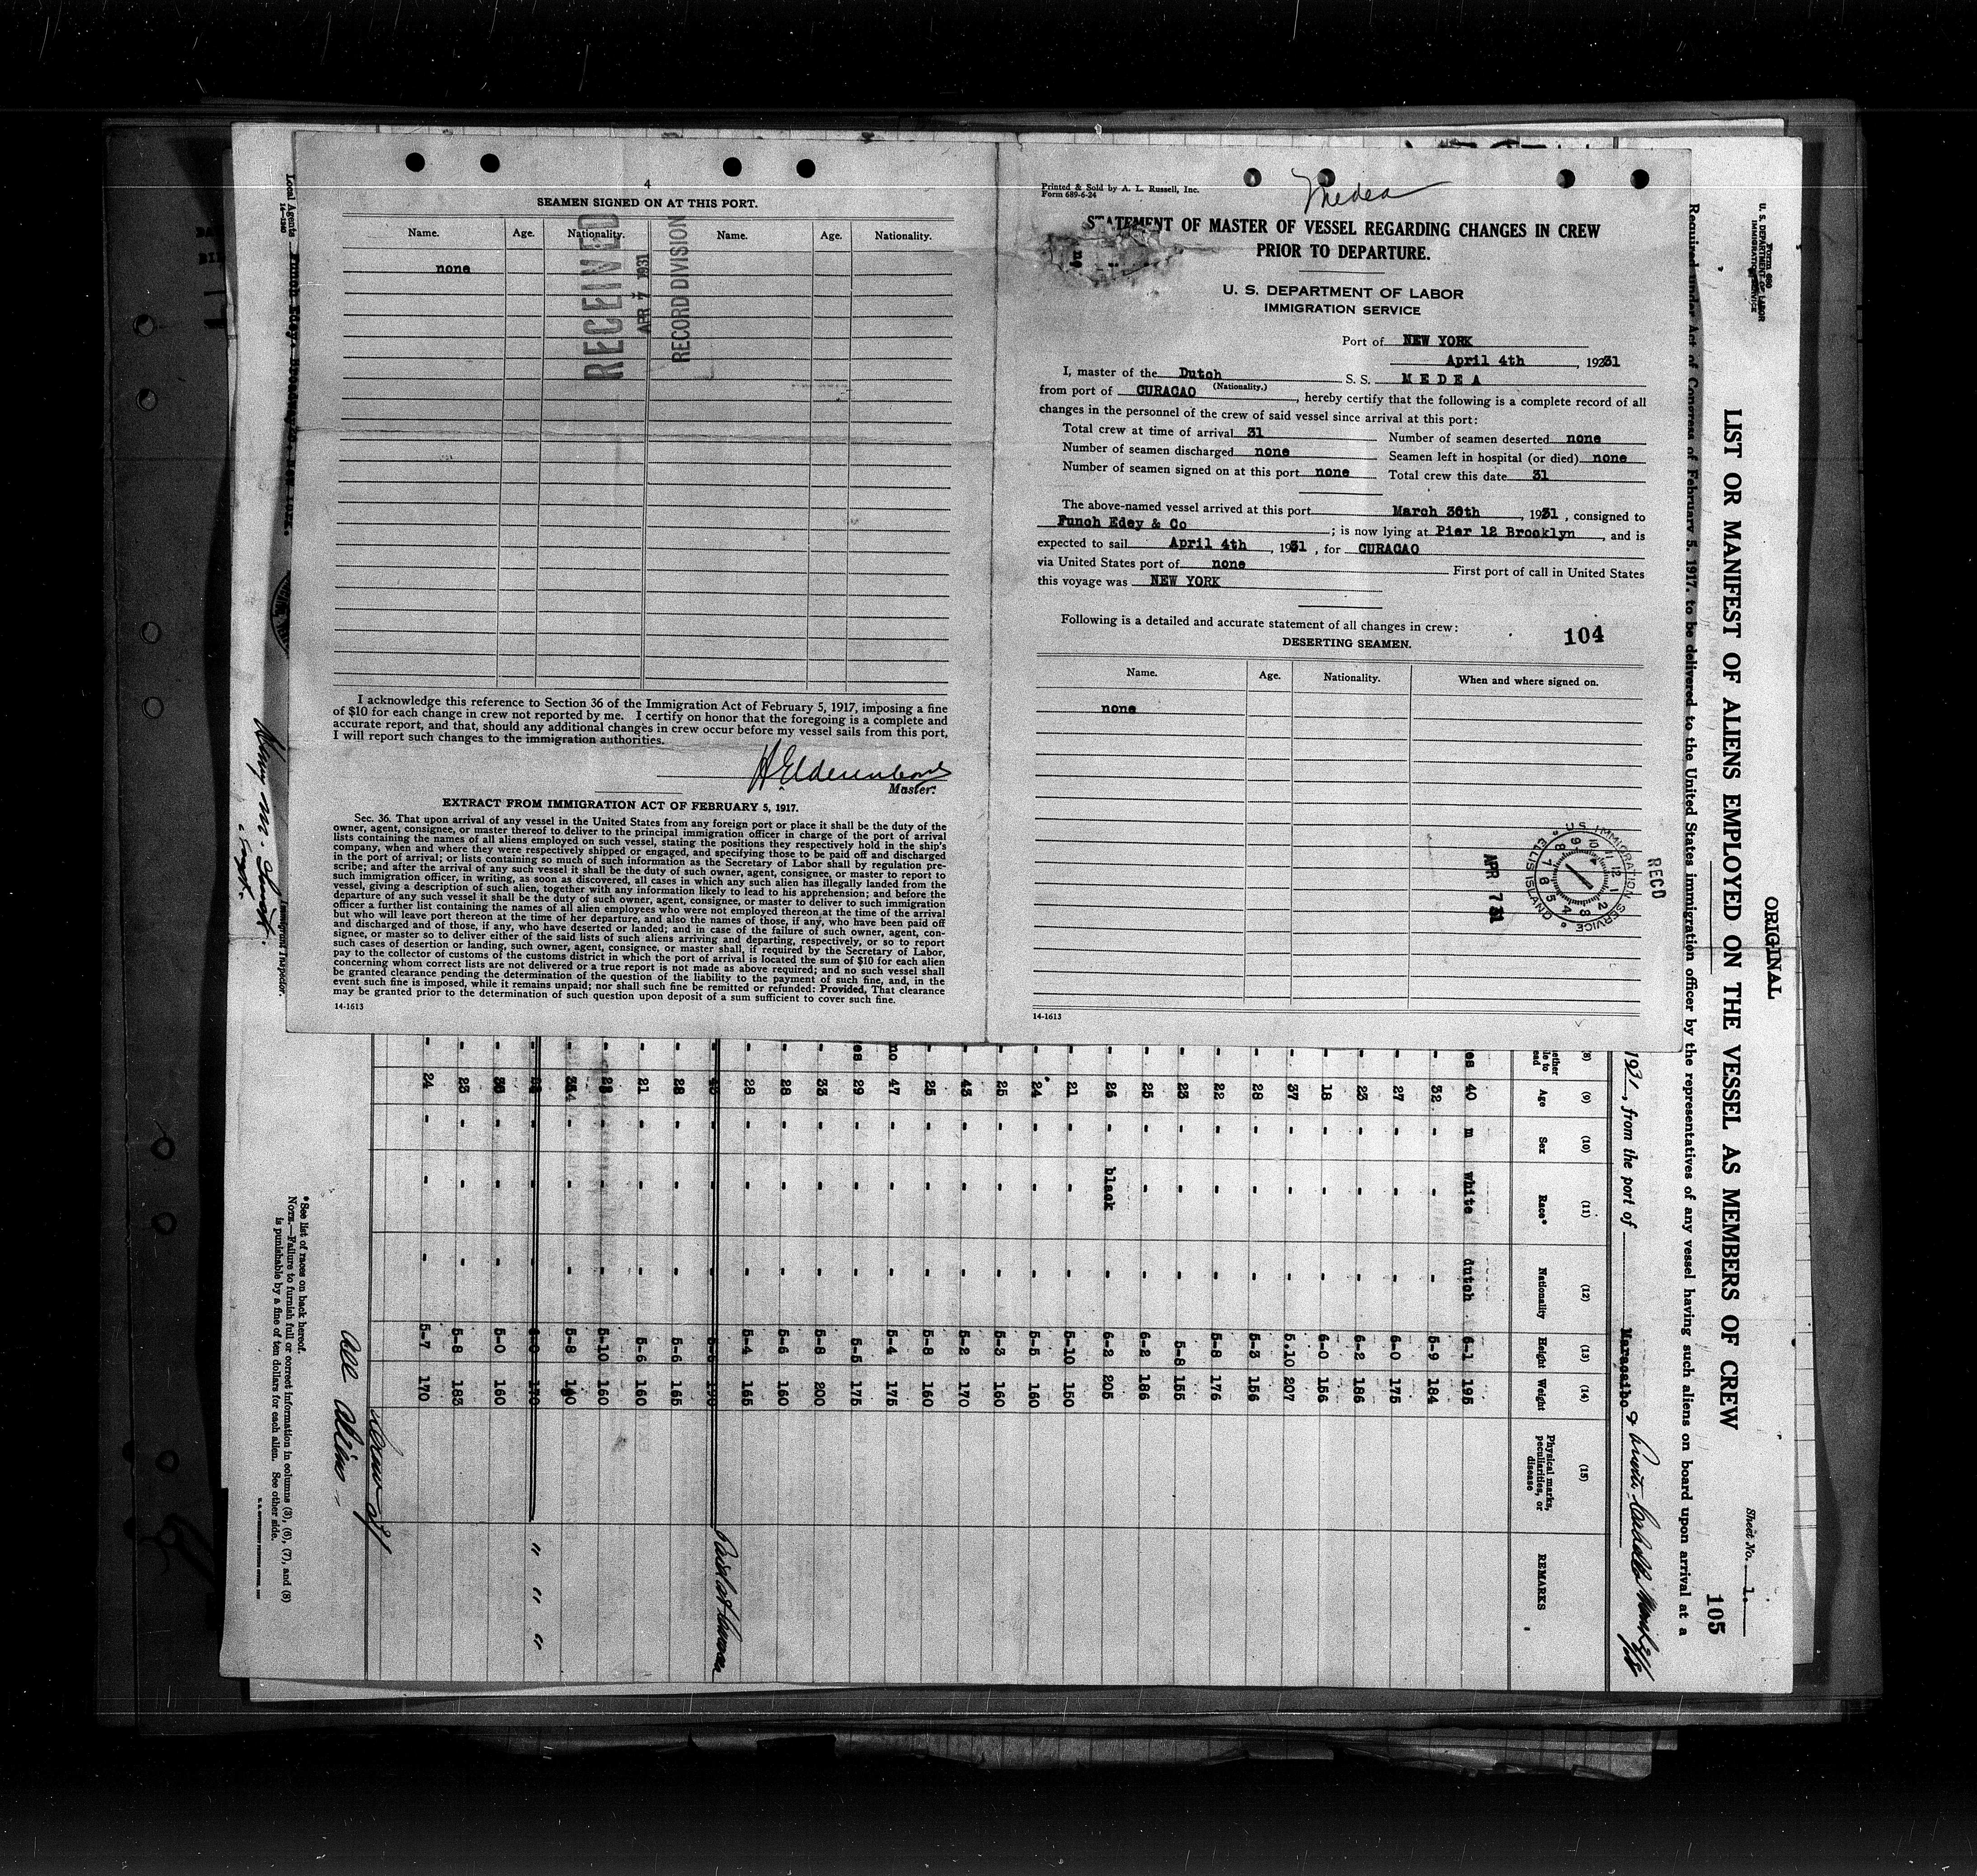 4
SEAMEN SIGNED ON AT THIS PORT.
Name. Age. Nationality. Name. Age. Nationality.
none
RECEIVED
APR 7 1931
RECORD DIVISION
I acknowledge this reference to Section 36 of the Immigration Act of February 5, 1917, imposing a fine
of $10 for each change in crew not reported by me. I certify on honor that the foregoing is a complete and
accurate report, and that, should any additional changes in crew occur before my vessel sails from this port,
I will report such changes to the immigration authorities.
Master.
EXTRACT FROM IMMIGRATION ACT OF FEBRUARY 5, 1917.
Sec. 36. That upon arrival of any vessel in the United States from any foreign port or place it shall be the duty of the
owner, agent, consignee, or master thereof to deliver to the principal immigration officer in charge of the port of arrival
lists containing the names of all aliens employed on such vessel, stating the positions they respectively hold in the ship's
company, when and where they were respectively shipped or engaged, and specifying those to be paid off and discharged
in the port of arrival; or lists containing so much of such information as the Secretary of Labor shall by regulation pre-
scribe; and after the arrival of any such vessel it shall be the duty of such owner, agent, consignee, or master to report to
such immigration officer, in writing, as soon as discovered, all cases in which any such alien has illegally landed from the
vessel, giving a description of such alien, together with any information likely to lead to his apprehension; and before the
departure of any such vessel it shall be the duty of such owner, agent, consignee, or master to deliver to such immigration
officer a further list containing the names of all alien employees who were not employed thereon at the time of the arrival
but who will leave port thereon at the time of her departure, and also the names of those, if any, who have been paid off
and discharged and of those, if any, who have deserted or landed; and in case of the failure of such owner, agent, con-
signee, or master so to deliver either of the said lists of such aliens arriving and departing, respectively, or so to report
such cases of desertion or landing, such owner, agent, consignee, or master shall, if required by the Secretary of Labor,
pay to the collector of customs of the customs district in which the port of arrival is located the sum of $10 for each alien
concerning whom correct lists are not delivered or a true report is not made as above required; and no such vessel shall
be granted clearance pending the determination of the question of the liability to the payment of such fine, and, in the
event such fine is imposed, while it remains unpaid; nor shall such fine be remitted or refunded: Provided, That clearance
may be granted prior to the determination of such question upon deposit of a sum sufficient to cover such fine.
14-1613
Printed & Sold by A. L. Russell, Inc.
Form 689-6-24
Medea
STATEMENT OF MASTER OF VESSEL REGARDING CHANGES IN CREW
PRIOR TO DEPARTURE.
U. S. DEPARTMENT OF LABOR
IMMIGRATION SERVICE
Port of NEW YORK
April 4th, 1931
I, master of the Dutch S. S. MEDEA
(Nationality.)
from port of CURACAO, hereby certify that the following is a complete record of all
changes in the personnel of the crew of said vessel since arrival at this port:
Total crew at time of arrival 31 Number of seamen deserted none
Number of seamen discharged none Seamen left in hospital (or died) none
Number of seamen signed on at this port none Total crew this date 31
The above-named vessel arrived at this port March 30th, 1931, consigned to
Funch Edey & Co; is now lying at Pier 12 Brooklyn, and is
expected to sail April 4th, 1931, for CURACAO
via United States port of none First port of call in United States
this voyage was NEW YORK
Following is a detailed and accurate statement of all changes in crew:
104
DESERTING SEAMEN.
Name. Age. Nationality. When and where signed on.
none
U S IMMIGRATION SERVICE
ELLIS ISLAND
RECD
APR 7 31
14-1613
Form 680
U. S. DEPARTMENT OF LABOR
IMMIGRATION SERVICE
ORIGINAL
Sheet No. 1.
105
LIST OR MANIFEST OF ALIENS EMPLOYED ON THE VESSEL AS MEMBERS OF CREW
Required under Act of Congress of February 5, 1917, to be delivered to the United States immigration officer by the representatives of any vessel having such aliens on board upon arrival at a
1931, from the port of Maracaibo &
(9) (10) (11) (12) (13) (14) (15)
Age Sex Race* Nationality Height Weight Physical marks, peculiarities, or disease REMARKS
es 40 m white dutch 6-1 195
- 32 - - - 5-9 184
- 27 - - - 6-0 175
- 23 - - - 6-2 186
- 18 - - - 6-0 156
- 37 - - - 5.10 207
- 28 - - - 5-3 156
- 22 - - - 5-8 176
- 23 - - - 5-8 155
- 25 - - - 6-2 186
- 26 - black - 6-2 205
- 21 - - - 5-10 150
- 24 - - - 5-5 160
- 25 - - - 5-3 160
- 43 - - - 5-2 170
- 25 - - - 5-8 160
no 47 - - - 5-4 175
es 29 - - - 5-5 175
- 33 - - - 5-8 200
- 28 - - - 5-6 160
- 29 - - - 5-4 165
- 28 - - - 5-6 165
- 21 - - - 5-6 160
- 28 - - - 5-10 160
- 34 - - - 5-8 140
" " "
- 36 - - - 5-0 160
- 23 - - - 5-8 183
- 24 - - - 5-7 170
All Aliens
*See list of races on back hereof.
NOTE.—Failure to furnish full or correct information in columns (3), (6), (7), and (8)
is punishable by a fine of ten dollars for each alien. See other side.
Local Agents Funch Edey, Broadway New York.
14-1290
Immigrant Inspector.